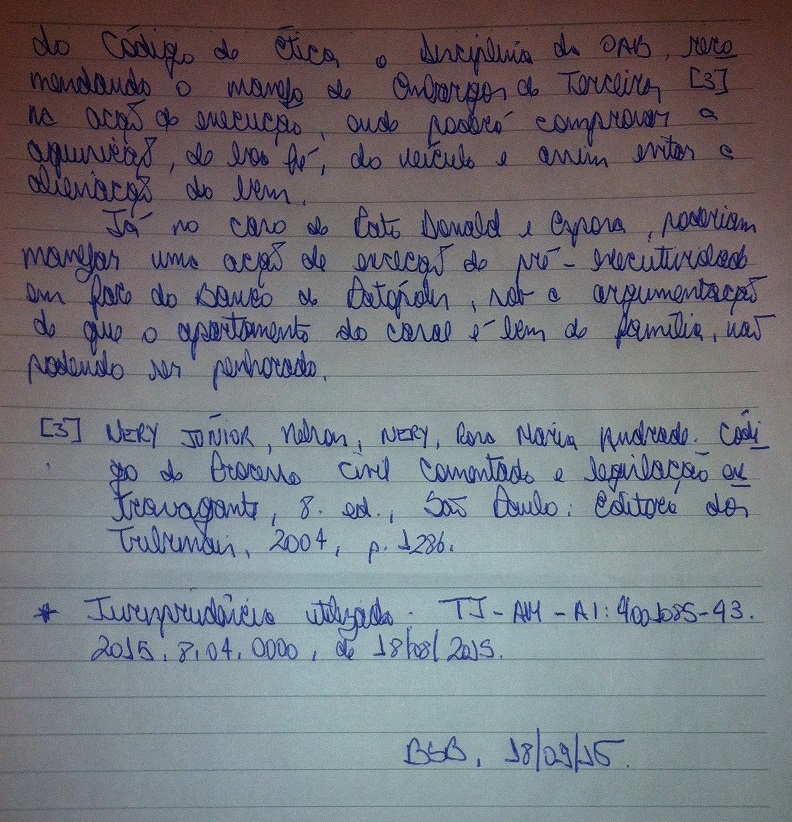 do Código de Ética e Disciplina da OAB, reco
mendando o manejo de Embargos de Terceiros [3]
na ação de execução, onde poderá comprovar a
aquisição, de boa fé, do veículo e assim evitar a
alienação do bem.
Já no caso de Pato Donald e esposa, poderiam
manejar uma ação de exceção de pré-executividade
em face do Banco de Patópolis, sob a argumentação
de que o apartamento do casal é bem de família, não
podendo ser penhorado.
[3] NERY JÚNIOR, Nelson, NERY, Rosa Maria Andrade. Códi
go de Processo Civil Comentado e legislação ex
travagante, 8. ed., São Paulo: Editora dos
Tribunais, 2004, p. 1286.
* Jurisprudência utilizada: TJ-AM-AI: 4001085-43.
2015.8.04.0000, de 18/08/2015.
BSB, 18/09/15.